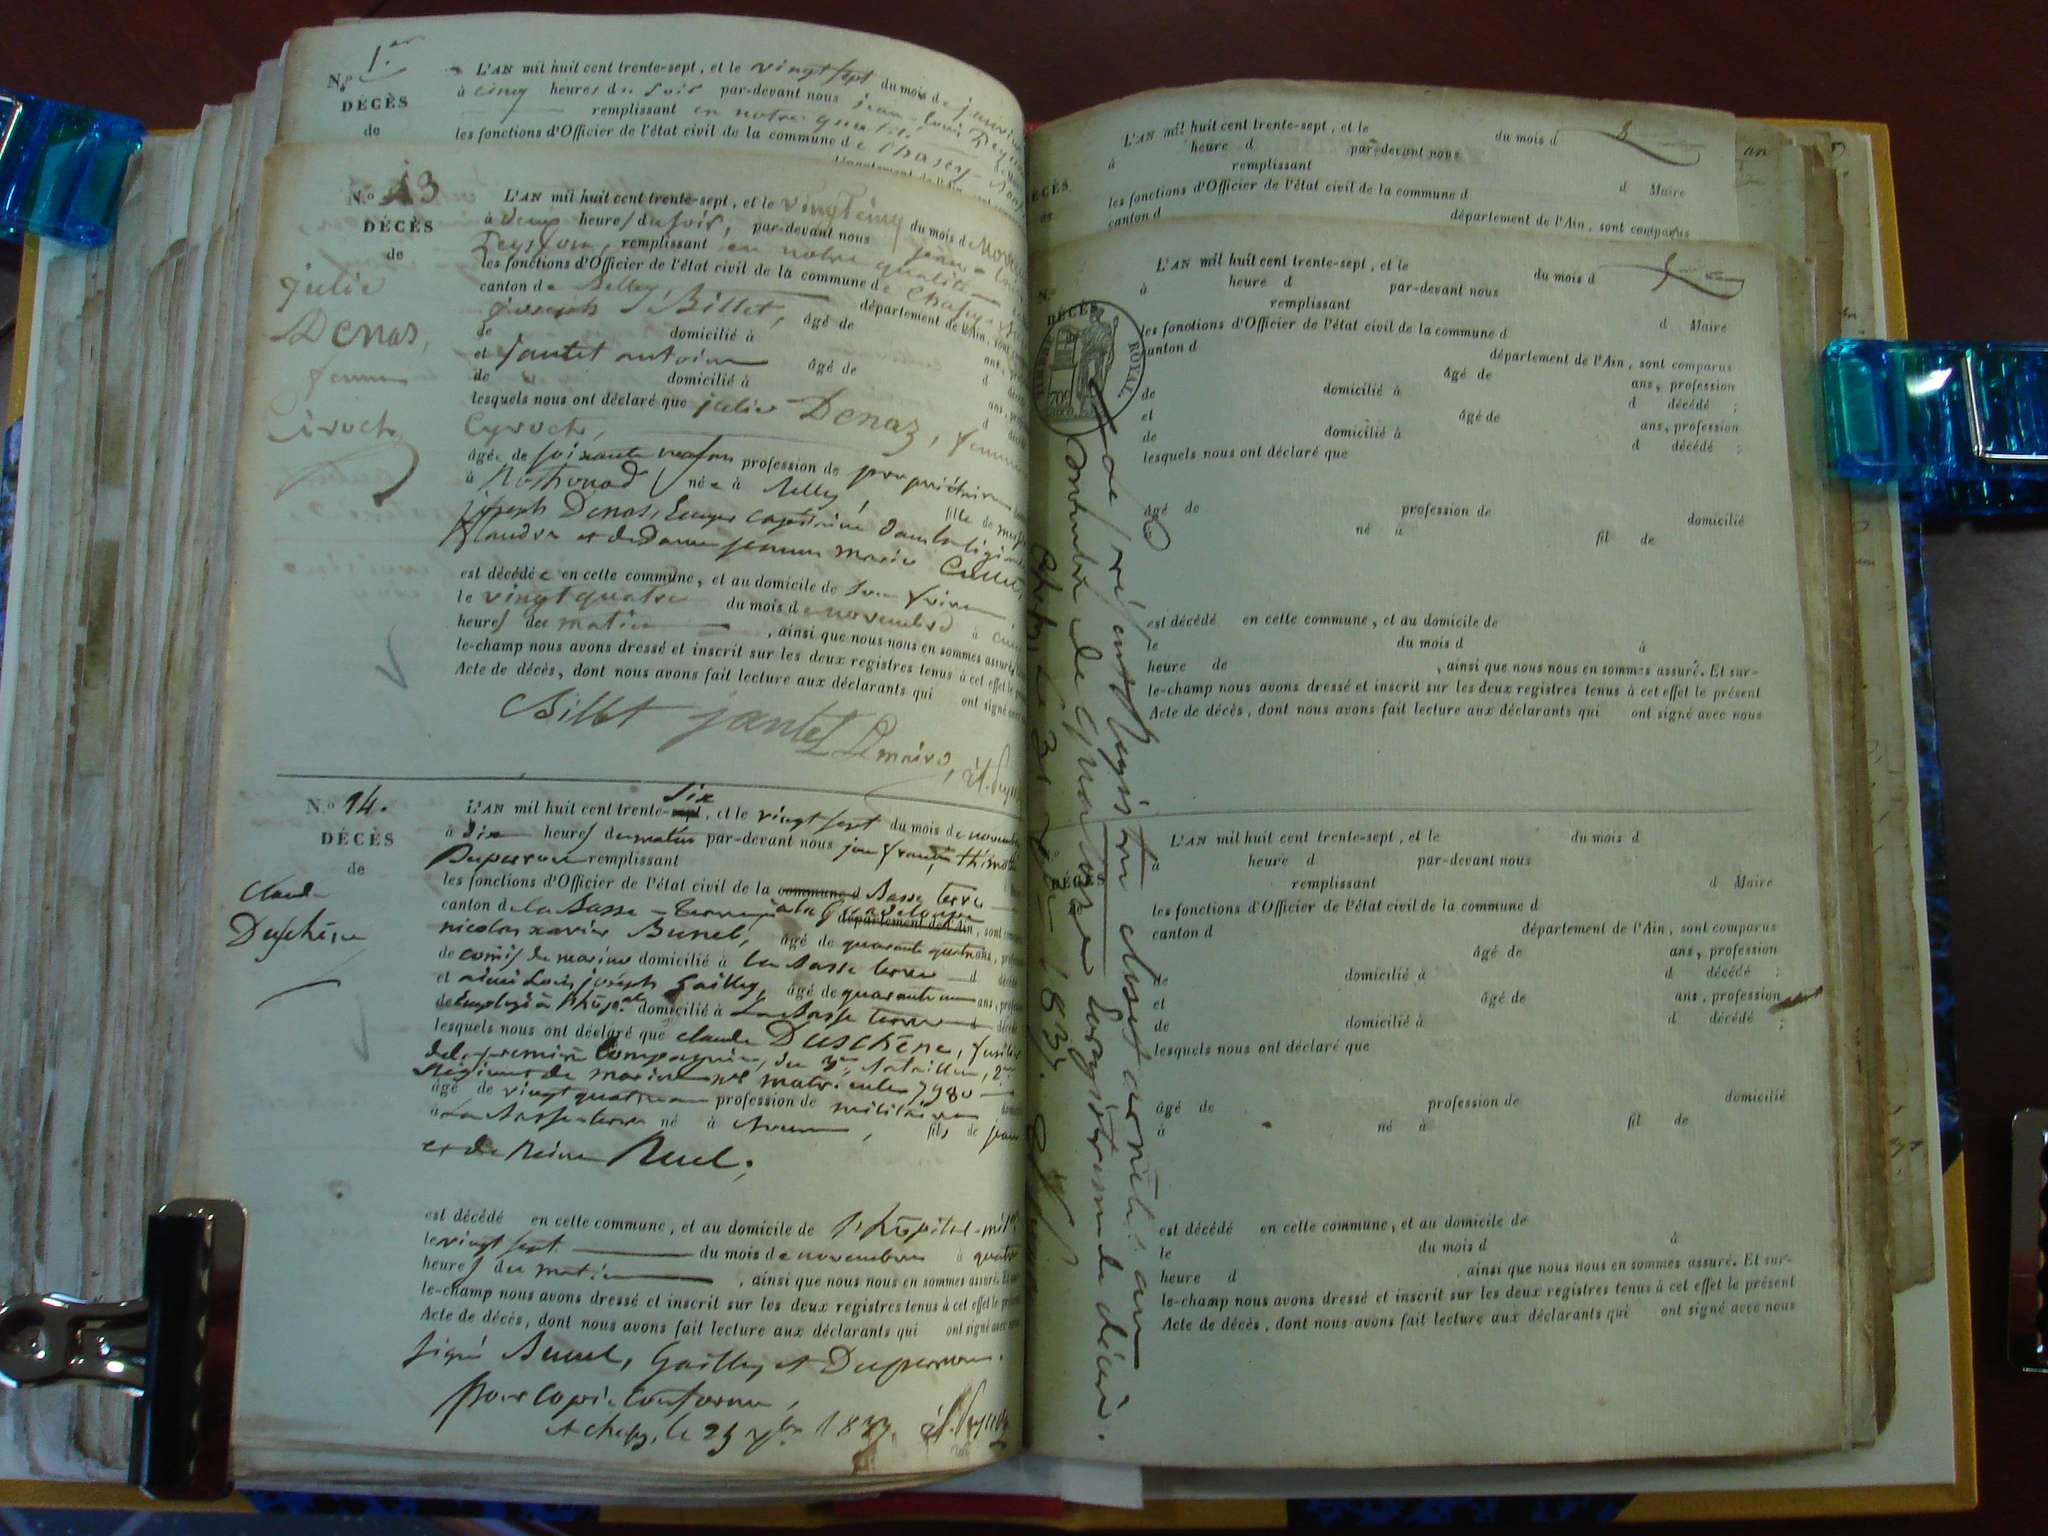 N.º 1.er
DÉCÈS
de
L'AN mil huit cent trente-sept, et le vingt sept du mois de
à cinq heures du soir par-devant nous jean-Louis
remplissant en notre qualité
les fonctions d'Officier de l'état civil de la commune de
N.º 13
DÉCÈS
de
julie
Denas,
femme
L'AN mil huit cent trente-sept, et le vingt cinq du mois de
à deux heures du soir, par-devant nous jean-Louis
remplissant en notre qualité
les fonctions d'Officier de l'état civil de la commune de
canton de Belley département de l'Ain, sont
joseph Billet, âgé de
de domicilié à ans,
et jantet antoine âgé de d
de domicilié à ans,
lesquels nous ont déclaré que julie Denaz, femme
âgée de soixante neuf ans profession de propriétaire
à Rothonod née à Belley, fille de
joseph Denas, Ecuyer capitaine dans la légion
flandre et de Dame jeanne marie
est décédée en cette commune, et au domicile de
le vingt quatre du mois de novembre à
heures du matin , ainsi que nous nous en sommes assuré.
le-champ nous avons dressé et inscrit sur les deux registres tenus à cet effet le
Acte de décès, dont nous avons fait lecture aux déclarants qui ont signé avec
Billet jantet Le maire,
N.º 14.
DÉCÈS
de
Claude
Duschène
L'AN mil huit cent trente-sept six, et le vingt sept du mois de novembre
à dix heures du matin par-devant nous jean françois
Duperrou remplissant
les fonctions d'Officier de l'état civil de la commune d Basse terre
canton de la Basse-terre à la Guadeloupe département de l'Ain, sont
nicolas xavier Bunel, âgé de quarante quatre ans,
de commis de marine domicilié à la Basse terre d
et aimé Louis joseph Gailley, âgé de quarante un ans,
de employé à l'hôpal domicilié à La Basse terre d
lesquels nous ont déclaré que claude Duschène, fusilier
de la première Compagnie, du 3me bataillon, 2me
Régiment de marine no matricule 7980
âgé de vingt quatre ans profession de militaire
à La Basse terre né à fils de jean
et de Reine Ruel.
est décédé en cette commune, et au domicile de l'hôpital
le vingt sept du mois de novembre à quatre
heures du matin , ainsi que nous nous en sommes assuré.
le-champ nous avons dressé et inscrit sur les deux registres tenus à cet effet le
Acte de décès, dont nous avons fait lecture aux déclarants qui ont signé avec nous
signé Bunel, Gailley et Duperrou.
pour copie conforme,
L'AN mil huit cent trente-sept, et le du mois d
à heure d par-devant nous
remplissant
d Maire
les fonctions d'Officier de l'état civil de la commune d
canton d département de l'Ain, sont comparus
DÉCÈS
ROYAL
L'AN mil huit cent trente-sept, et le du mois d
à heure d par-devant nous
remplissant
d Maire
les fonctions d'Officier de l'état civil de la commune d
canton d département de l'Ain, sont comparus
âgé de ans, profession
de domicilié à d décédé ;
et âgé de ans, profession
de domicilié à d décédé ;
lesquels nous ont déclaré que
âgé de profession de domicilié
né à fil de
est décédé en cette commune, et au domicile de
le du mois d à
heure de , ainsi que nous nous en sommes assuré. Et sur-
le-champ nous avons dressé et inscrit sur les deux registres tenus à cet effet le présent
Acte de décès, dont nous avons fait lecture aux déclarants qui ont signé avec nous
le présent registre clos et arrêté au
nombre de quatorze Enregistrement de décès.
DÉCÈS
L'AN mil huit cent trente-sept, et le du mois d
à heure d par-devant nous
remplissant d Maire
les fonctions d'Officier de l'état civil de la commune d
canton d département de l'Ain, sont comparus
âgé de ans, profession
de domicilié à d décédé ;
et âgé de ans, profession
de domicilié à d décédé ;
lesquels nous ont déclaré que
âgé de profession de domicilié
à né à fil de
est décédé en cette commune, et au domicile de
le du mois d à
heure d , ainsi que nous nous en sommes assuré. Et sur-
le-champ nous avons dressé et inscrit sur les deux registres tenus à cet effet le présent
Acte de décès, dont nous avons fait lecture aux déclarants qui ont signé avec nous